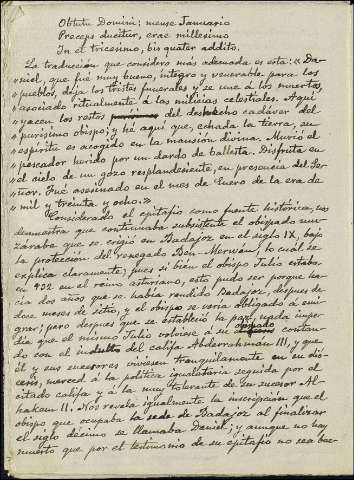 Obtutu Domini; mense Januario
Preceps ducitur, erae millesimo
In et tricesimo, bis quater addito.
La traducción que considero más adecuada es esta: «Da-
»niel, que fué muy bueno, íntegro y venerable para los
»pueblos, deja los tristes funerales y se une á los muertos,
»asociado ritualmente á las milicias celestiales. Aquí
»yacen los restos del deshecho cadáver del
»purísimo obispo; y hé aquí que, echada la tierra, su
»espíritu es acogido en la mansión divina. Murió el
»pescador herido por un dardo de ballesta. Disfruta en
»el cielo de un gozo resplandeciente, en presencia del Se-
»ñor. Fué asesinado en el mes de Enero de la era de
»mil y treinta y ocho.»
Considerado el epitafio como fuente histórica, nos
demuestra que continuaba subsistente el obispado mu-
zárabe que se erigió en Badajoz en el siglo IX, bajo
la protección del renegado Ben-Merwán, lo cuál se
explica claramente; pues si bién el obispo Julio estaba
en 932 en el reino asturiano, esto pudo ser porque ha-
cía dos años que se había rendido Badajoz, después de
doce meses de sitio, y el obispo se vería obligado á emi-
grar; pero después que se estableció la paz, nada impe-
día que el mismo Julio volviese á su obispado contan-
do con el indulto del califa Abderrahman III, y que
él y sus sucesores viviesen tranquilamente en su dió-
cesis, merced á la política igualatoria seguida por el
citado califa y á la muy tolerante de su sucesor Al-
hakem II. Nos revela igualmente la inscripción que el
obispo que ocupaba la sede de Badajoz al finalizar
el siglo décimo se llamaba Daniel; y aunque no hay
muerto que por el testimonio de su epitafio no sea bue-